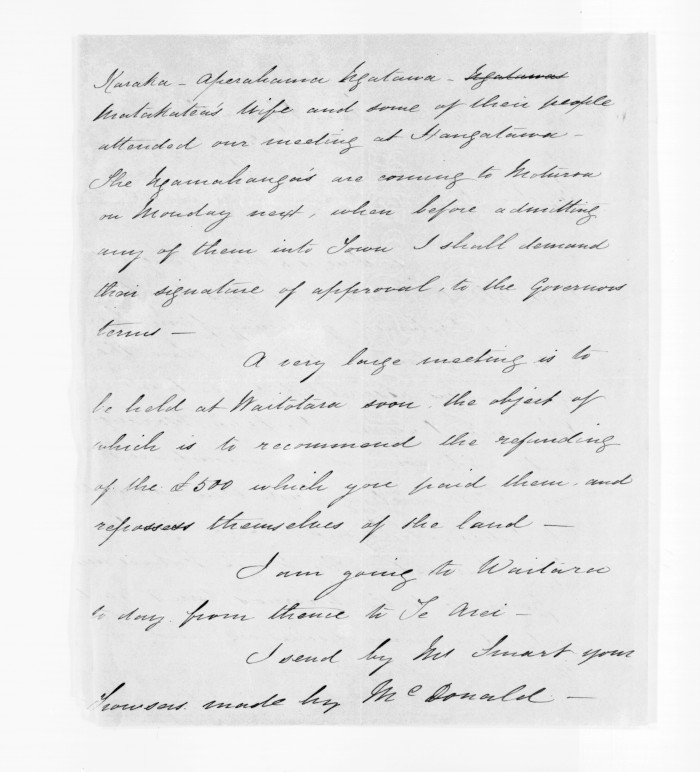 Karaka - Aperahama Ngatawa - Ngatawas
Matakatea's Wife and some of their people
attended our meeting at Hangatawa -
The Ngamahanga's are coming to Moturoa
on Monday next, when before admitting
any of them into Town I shall demand
their signature of approval, to the Governors
terms -
A very large meeting is to
be held at Waitotara soon. the object of
which is to recommend the refunding
of the £500 which you paid them. and
repossess themselves of the land -
I am going to Waitara
to day. from thence to Te Arei -
I send by Mr Smart your
Trowsers made by McDonald -